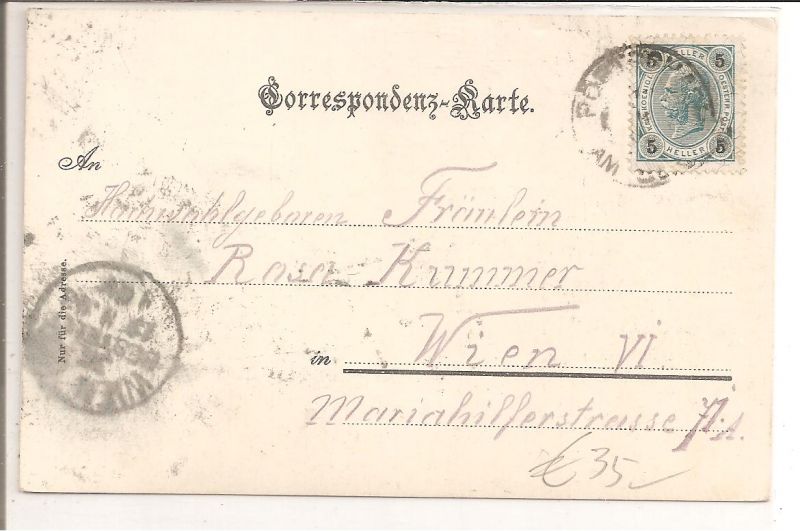 Correspondenz-Karte.
5 HELLER 5
KAIS. KOENIGL. OESTERR. POST
5 HELLER 5
AM
An
Hochwohlgeboren Fräulein
Rosa Krummer
in Wien VI.
Mariahilferstrasse
Nur für die Adresse.
WIEN
€ 35